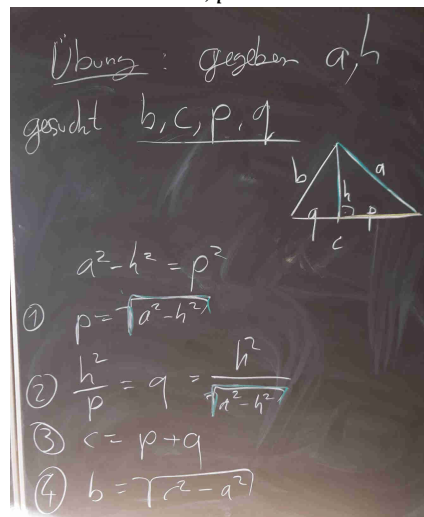 Übung : gegeben a, h
gesucht b, c, p, q
b a
h
q p
c
a² - h² = p²
① p = √(a² - h²)
② h²/p = q = h²/√(a² - h²)
③ c = p + q
④ b = √(c² - a²)